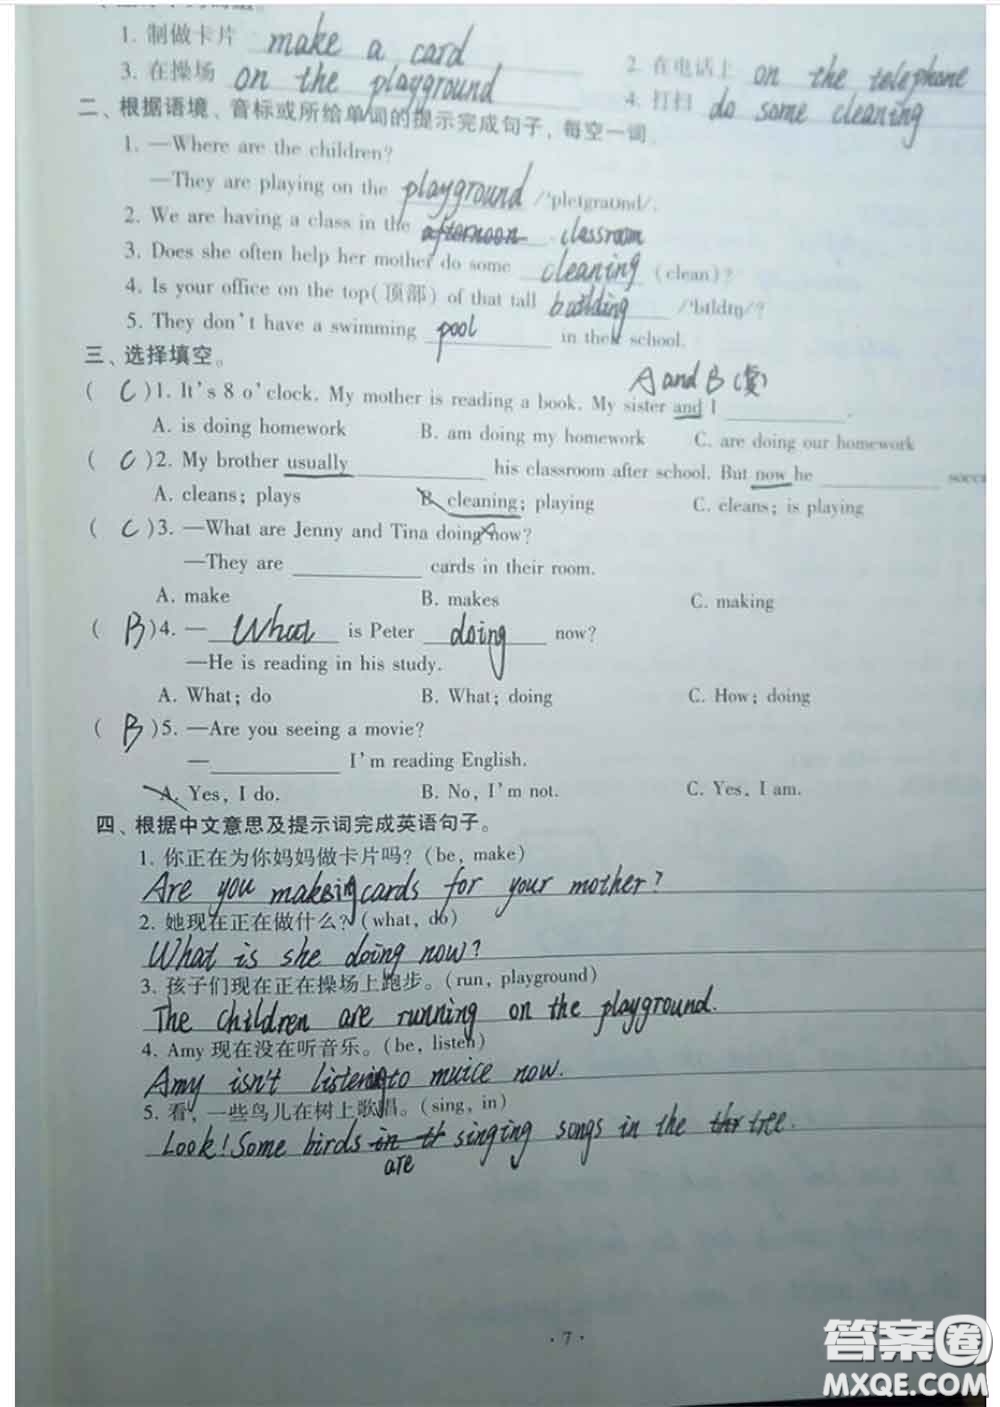 1. 制做卡片 make a card 2. 在电话上 on the telephone
3. 在操场 on the playground 4. 打扫 do some cleaning
二、根据语境、音标或所给单词的提示完成句子，每空一词。
1. —Where are the children?
—They are playing on the playground /'pleɪgraʊnd/.
2. We are having a class in the afternoon classroom
3. Does she often help her mother do some cleaning (clean)?
4. Is your office on the top(顶部) of that tall building /'bɪldɪŋ/?
5. They don't have a swimming pool in their school.
三、选择填空。
A and B (复)
( C )1. It's 8 o'clock. My mother is reading a book. My sister and I ________.
A. is doing homework B. am doing my homework C. are doing our homework
( C )2. My brother usually ________ his classroom after school. But now he ________ socce
A. cleans; plays B. cleaning; playing C. cleans; is playing
( C )3. —What are Jenny and Tina doing now?
—They are ________ cards in their room.
A. make B. makes C. making
( B )4. — What is Peter doing now?
—He is reading in his study.
A. What; do B. What; doing C. How; doing
( B )5. —Are you seeing a movie?
—________ I'm reading English.
A. Yes, I do. B. No, I'm not. C. Yes, I am.
四、根据中文意思及提示词完成英语句子。
1. 你正在为你妈妈做卡片吗? (be, make)
Are you making cards for your mother?
2. 她现在正在做什么? (what, do)
What is she doing now?
3. 孩子们现在正在操场上跑步。(run, playground)
The children are running on the playground.
4. Amy 现在没在听音乐。(be, listen)
Amy isn't listening to muice now.
5. 看，一些鸟儿在树上歌唱。(sing, in)
Look! Some birds in th singing songs in the thr tree.
are
· 7 ·
答案圈
MXQE.COM